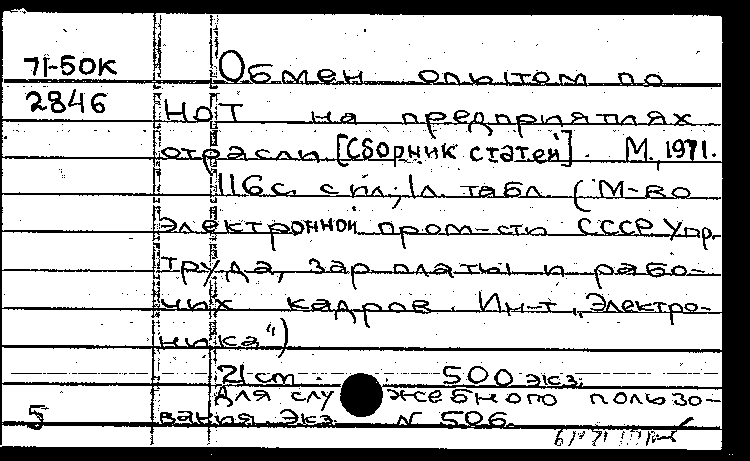 71-50К
2846
Обмен опытом по
НОТ на предприятиях
отрасли [Сборник статей]. М., 1971.
116с. с ил.; 1л. табл. (М-во
электронной пром-сти СССР Упр.
труда, зар платы и рабо-
чих кадров. Ин-т „Электро-
ника")
21 cm. 500 экз.
Для служебного пользо-
5 вания. Экз. N 506.